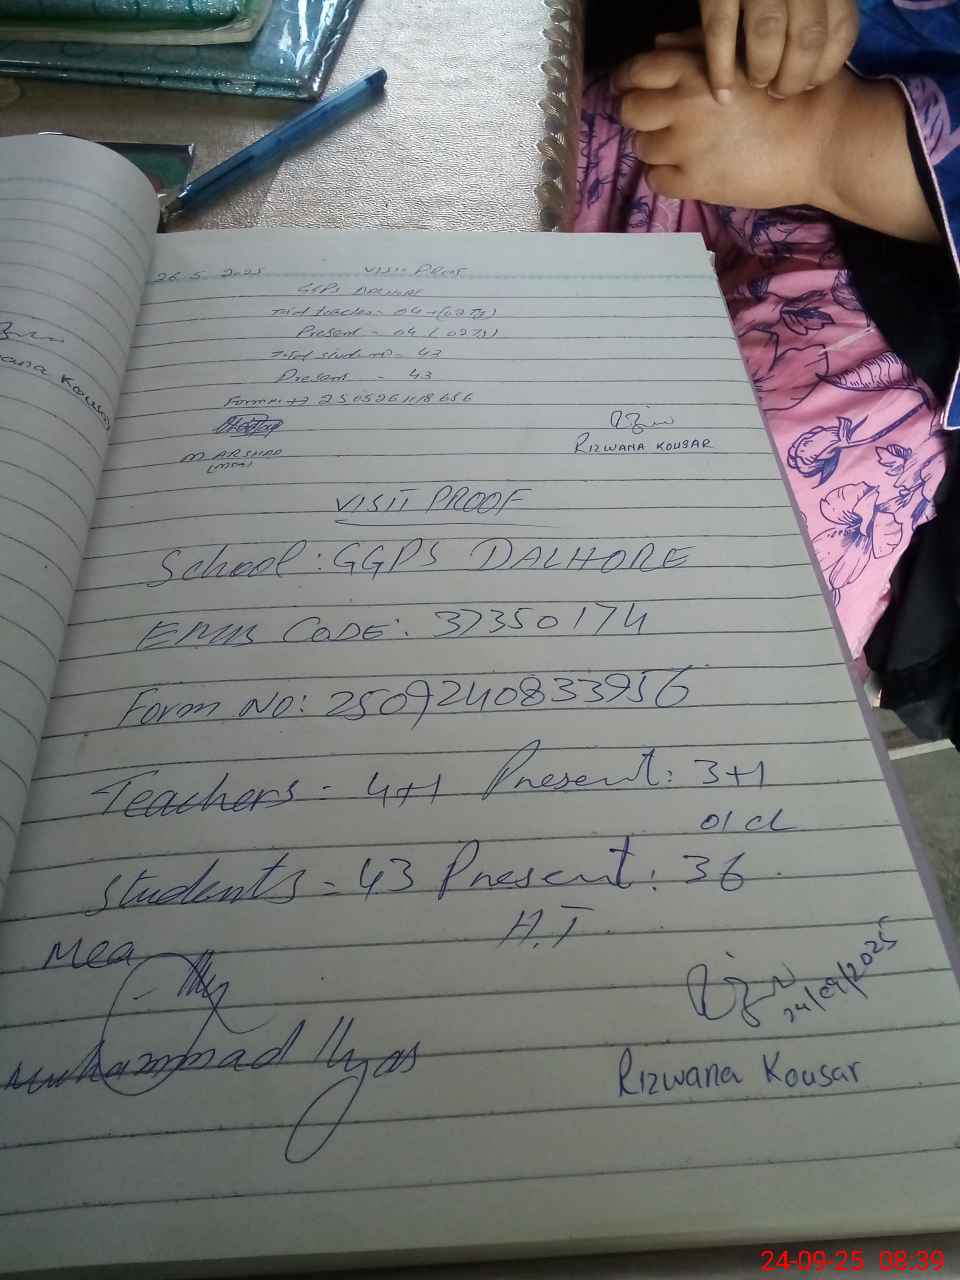 26.5.2025 VISIT PROOF
GGPS DALHORE
Total teacher = 04 + (02 TJ)
Present - 04 (02 TJ)
Total students - 43
Present - 43
Form 250526
M ARSHAD
(MEA)
RIZWANA KOUSAR
ana Kousar
VISIT PROOF
School : GGPS DALHORE
EMIS CODE : 37350174
Form No : 2509240833956
Teachers - 4+1 Present : 3+1
01 cl
Students - 43 Present : 36
H.T
Mea
24/09/2025
Muhammad Ilyas
Rizwana Kousar
24-09-25 08:39